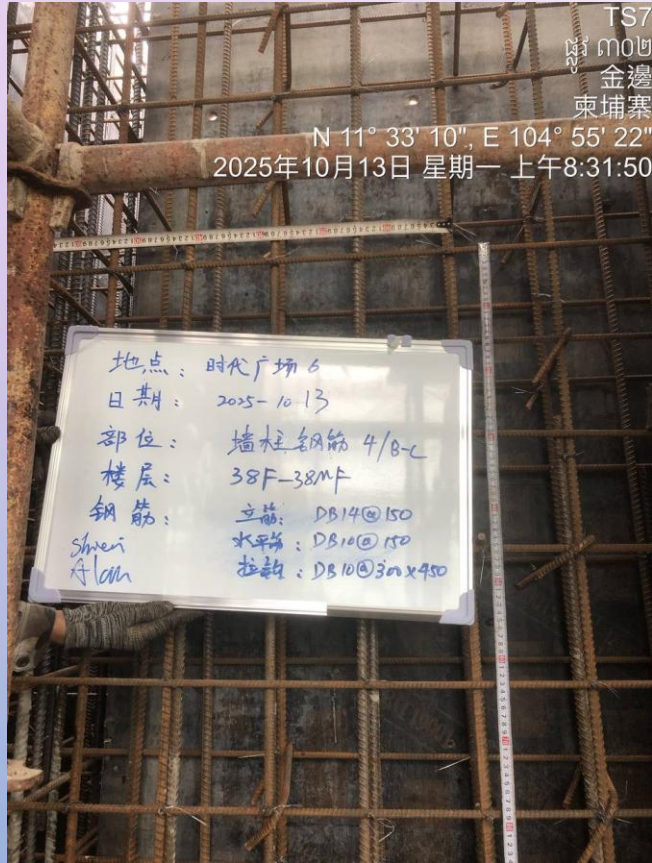 TS7
ផ្លូវ ៣០២
金邊
柬埔寨
N 11° 33' 10", E 104° 55' 22"
2025年10月13日 星期一 上午8:31:50
地点：时代广场 6
日期：2025-10-13
部位：墙柱钢筋 4/B-C
楼层：38F-38MF
钢筋：立筋：DB14@150
水平筋：DB10@150
拉钩：DB10@300x450
Alan